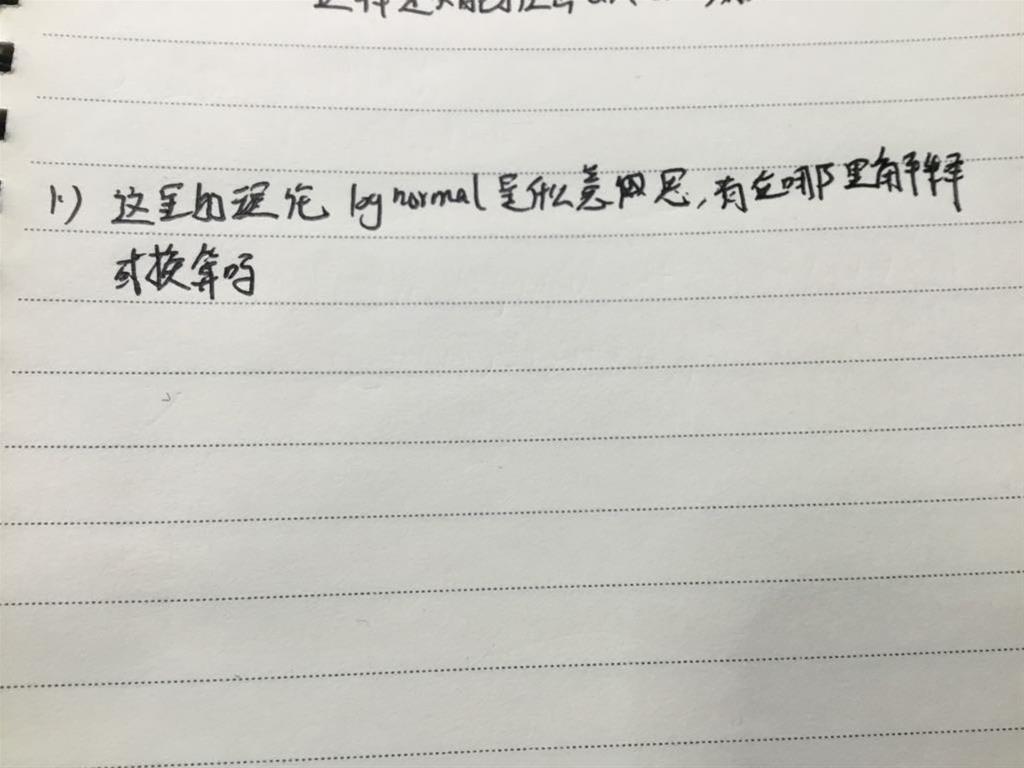 1.) 这里的理论 log normal 是什么意思,有在哪里解释
或换算吗